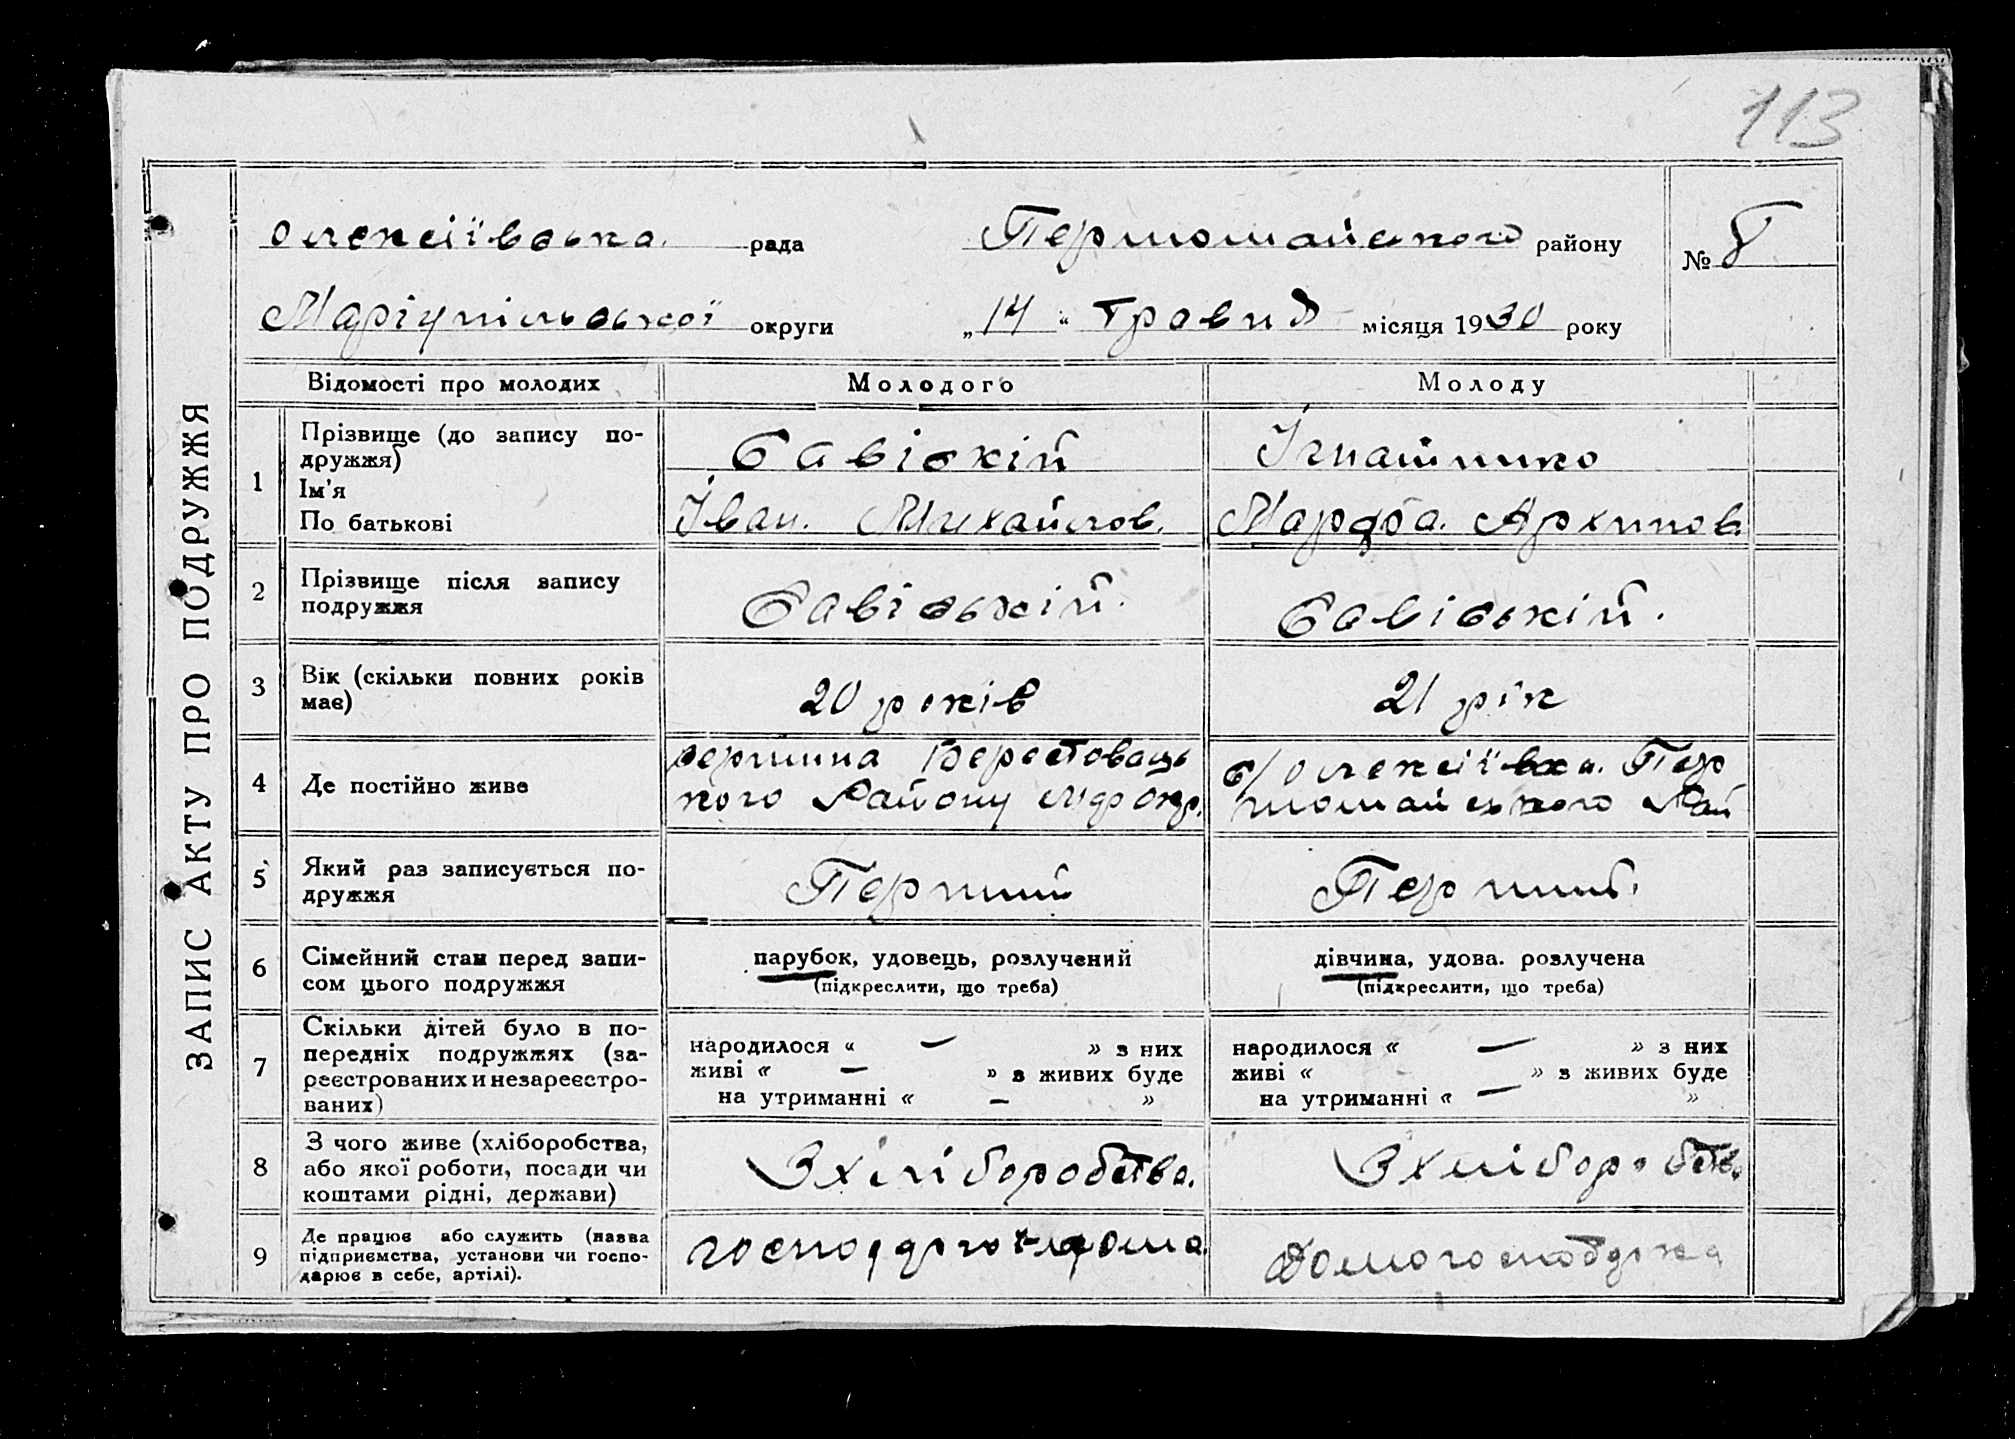 113
ЗАПИС АКТУ ПРО ПОДРУЖЖЯ
Олексіївська рада Першомайського району № 8
Маріупільської округи „14“ травня місяця 1930 року
Відомості про молодих Молодого Молоду
1 Прізвище (до запису по-
дружжя) Савіскій Ігнашишко
Ім'я
По батькові Іван. Михайлов. Марфа. Архипов.
2 Прізвище після запису
подружжя Савіській. Савіській.
3 Вік (скільки повних років
має) 20 років 21 рік
4 Де постійно живе Берестовець
кого Району с/Олексіївка. Пер
шомайського Рай
5 Який раз записується по-
дружжя Перший Перший.
6 Сімейний стан перед запи-
сом цього подружжя парубок, удовець, розлучений
(підкреслити, що треба) дівчина, удова. розлучена
(підкреслити, що треба)
7 Скільки дітей було в по-
передніх подружжях (за-
реєстрованих и незареєстро-
ваних)
народилося « — » з них
живі « — » з живих буде
на утриманні « — »
народилося « — » з них
живі « » з живих буде
на утриманні « — »
8 З чого живе (хліборобства,
або якої роботи, посади чи
коштами рідні, держави) З хліборобства. З хліборобств.
9 Де працює або служить (назва
підприємства, установи чи госпо-
дарює в себе, артілі).